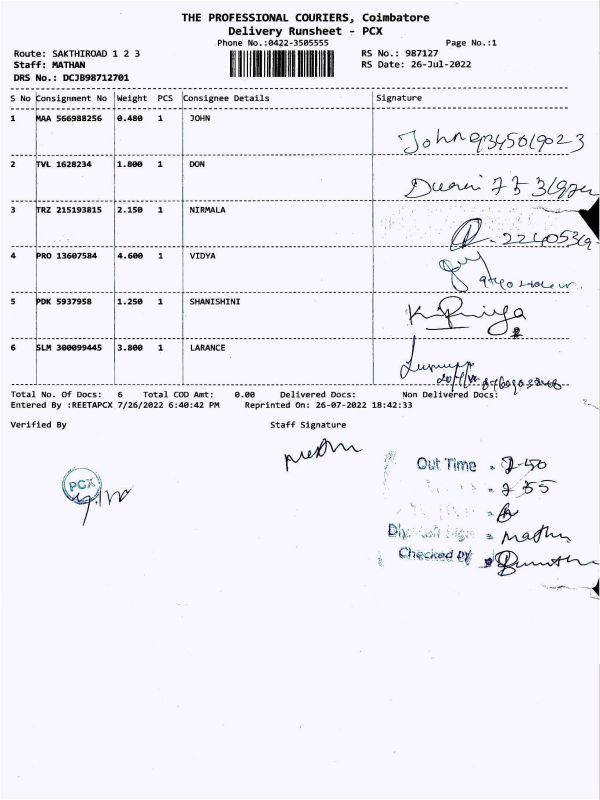 THE PROFESSIONAL COURIERS, Coimbatore
Delivery Runsheet - PCX
Phone No.:0422-3505555
Page No.:1
Route: SAKTHIROAD 1 2 3
RS No.: 987127
Staff: MATHAN
RS Date: 26-Jul-2022
DRS No.: DCJB98712701
S No Consignment No Weight PCS Consignee Details Signature
1 MAA 566988256 0.480 1 JOHN
John 9345019023
2 TVL 1628234 1.800 1 DON
3 TRZ 215193815 2.150 1 NIRMALA
4 PRO 13607584 4.600 1 VIDYA
5 PDK 5937958 1.250 1 SHANISHINI
K. Priya
6 SLM 300099445 3.800 1 LARANCE
Total No. Of Docs: 6 Total COD Amt: 0.00 Delivered Docs: Non Delivered Docs:
Entered By :REETAPCX 7/26/2022 6:40:42 PM Reprinted On: 26-07-2022 18:42:33
Verified By Staff Signature
PCX
Out Time
Checked By